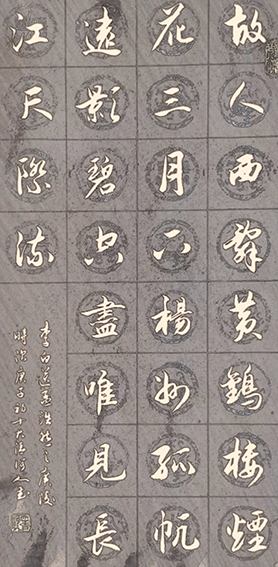 故人西辭黃鶴樓煙
花三月下揚州孤帆
遠影碧空盡唯見長
江天際流
李白送孟浩然之廣陵
庚子初